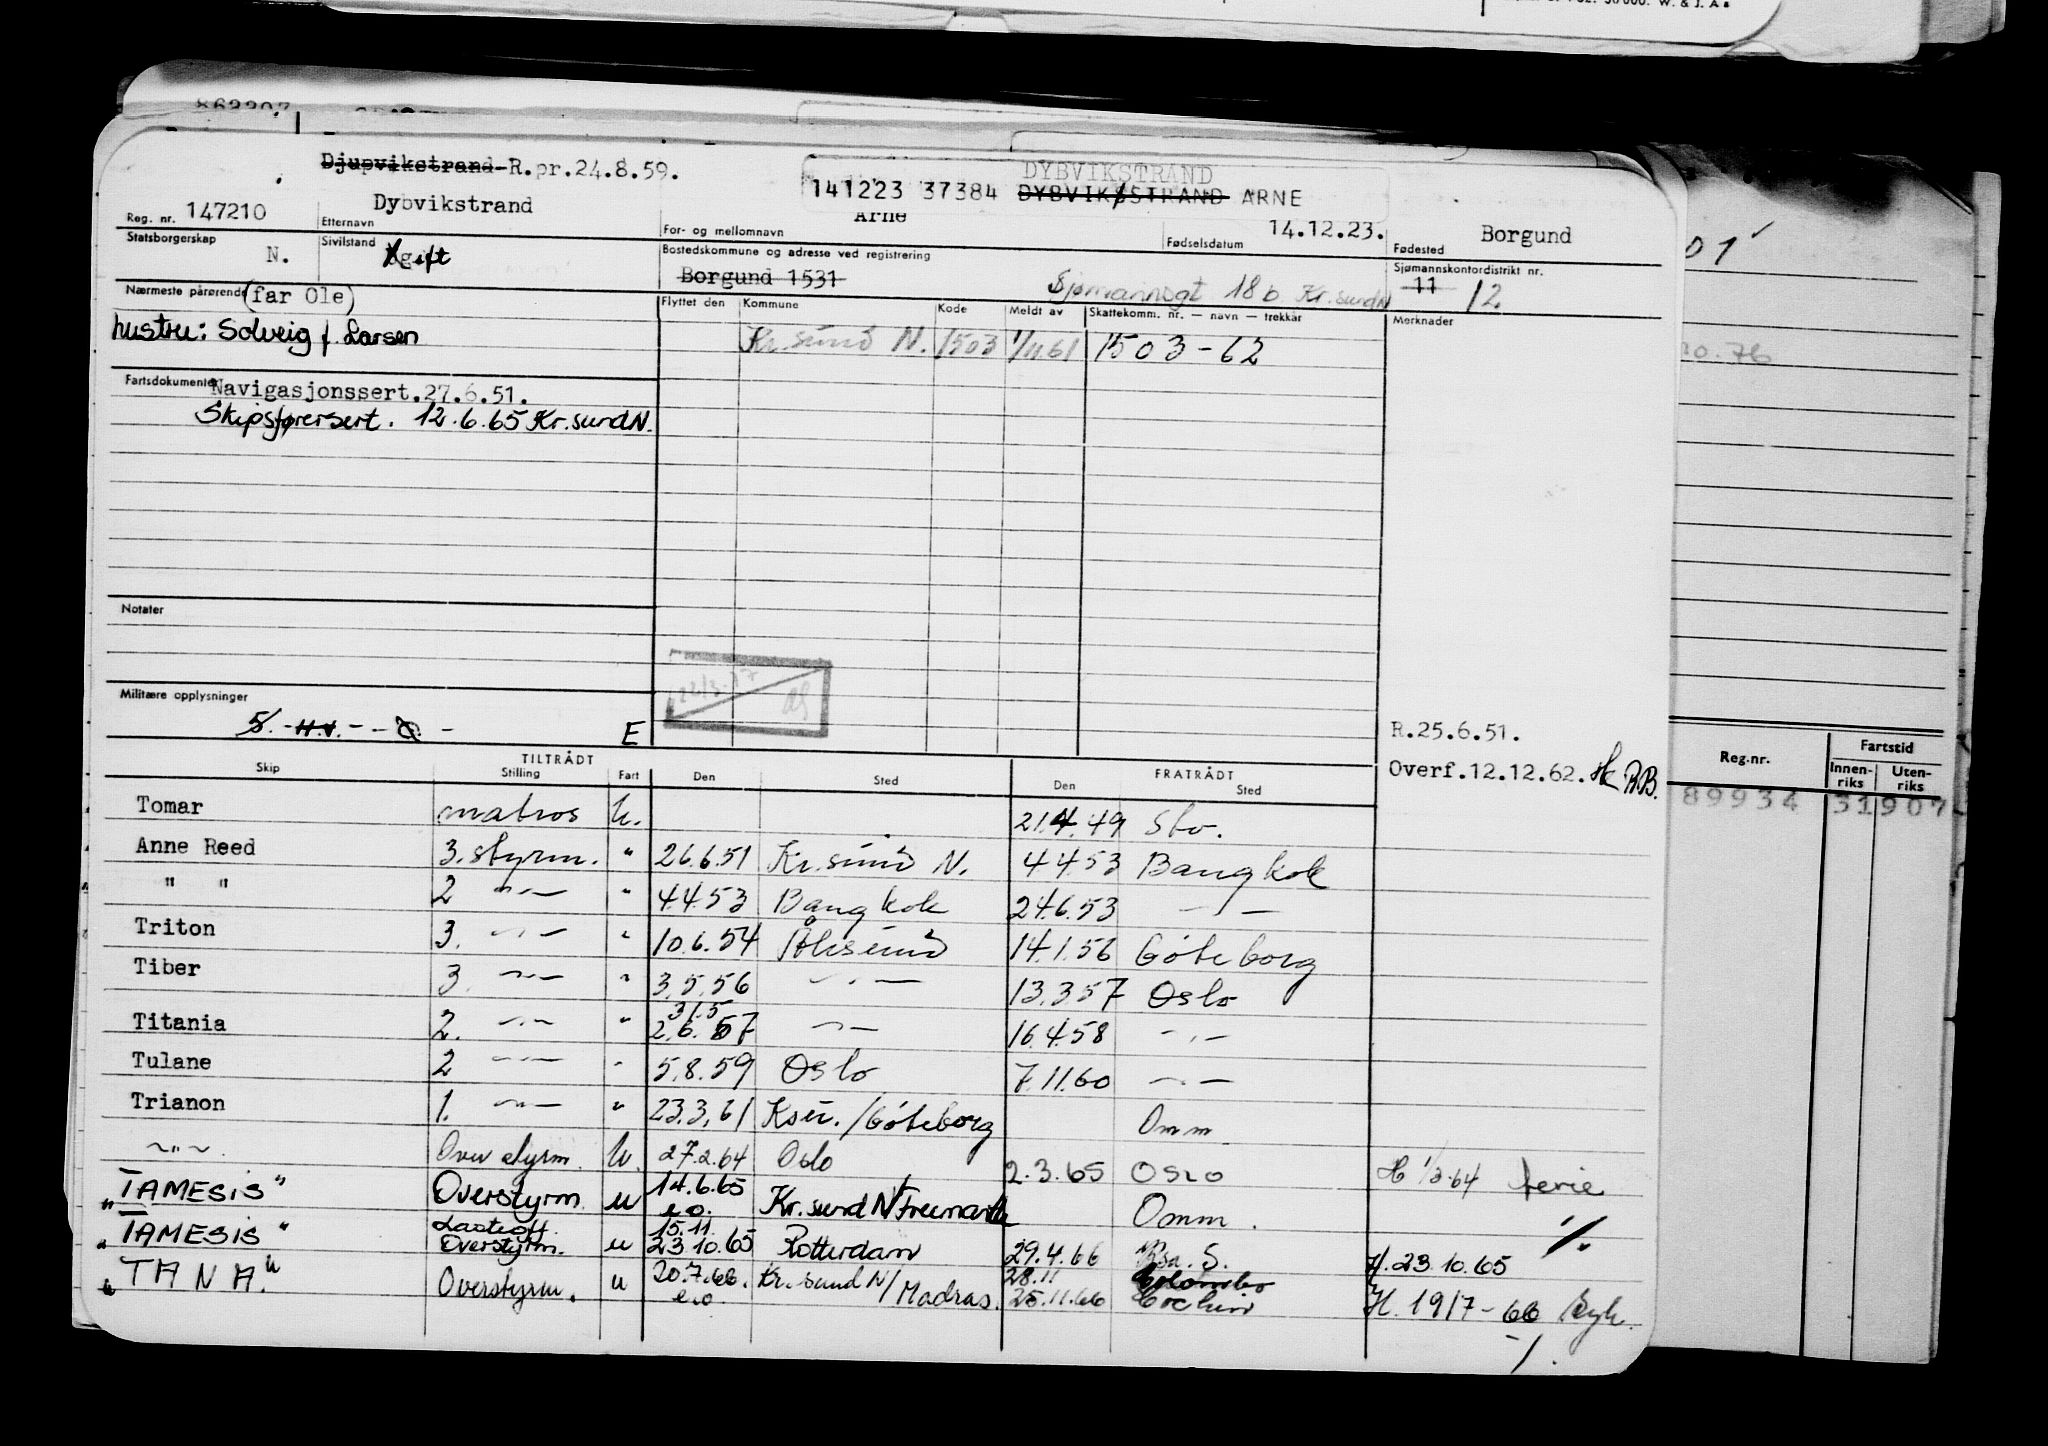 Djupvikstrand R.pr.24.8.59.
DYBVIKSTRAND
141223 37384 DYBVIKSTRAND ARNE
Reg. nr. 147210 Etternavn Dybvikstrand For- og mellomnavn Arne Fødselsdatum 14.12.23. Fødested Borgund
Statsborgerskap N. Sivilstand gift Bostedskommune og adresse ved registrering Borgund 1531 Sjømannsgt 18 b Kr.sund N Sjømannskontordistrikt nr. 11 12
Nærmeste pårørende (far Ole)
hustru: Solveig f. Larsen
Flyttet den Kommune Kode Meldt av Skattekomm. nr. — navn — trekkår Merknader
Kr.sund N. 1503 1/11 61 1503-62
Fartsdokumenter Navigasjonssert.27.6.51.
Skipsførersert. 12.6.65 Kr.sund N.
Notater
Militære opplysninger
E
R.25.6.51.
Overf.12.12.62.
Skip TILTRÅDT Stilling Fart Den Sted FRATRÅDT Den Sted
Tomar matros U. 21.4.49 Sto.
Anne Reed 3.styrm. " 26.6.51 Kr.sund N. 4.4.53 Bangkok
" " 2 -"- " 4.4.53 Bangkok 24.6.53 -"-
Triton 3. -"- " 10.6.54 Ålesund 14.1.56 Göteborg
Tiber 3. -"- " 3.5.56 -"- 13.3.57 Oslo
31.5
Titania 2. -"- " 2.6.57 -"- 16.4.58 -"-
Tulane 2 -"- " 5.8.59 Oslo 7.11.60 -"-
Trianon 1. -"- " 23.3.61 Ksu./Göteborg Omm
-"- Overstyrm. U. 27.2.64 Oslo 2.3.65 Oslo H 1/3.64 ferie
"TAMESIS" Overstyrm u 14.6.65 e.o. Kr.sund N Omm.
"TAMESIS" Overstyrm. u 15.11. 23.10.65 Rotterdam 29.4.66 H.23.10.65
"TANA" Overstyrm. u 20.7.66. e.o. Kr.sund N/Madras. 28.11 Colombo
25.11.66 Cochin H. 19/7-66
Reg.nr. Fartstid
Innenriks Utenriks
89934 31907